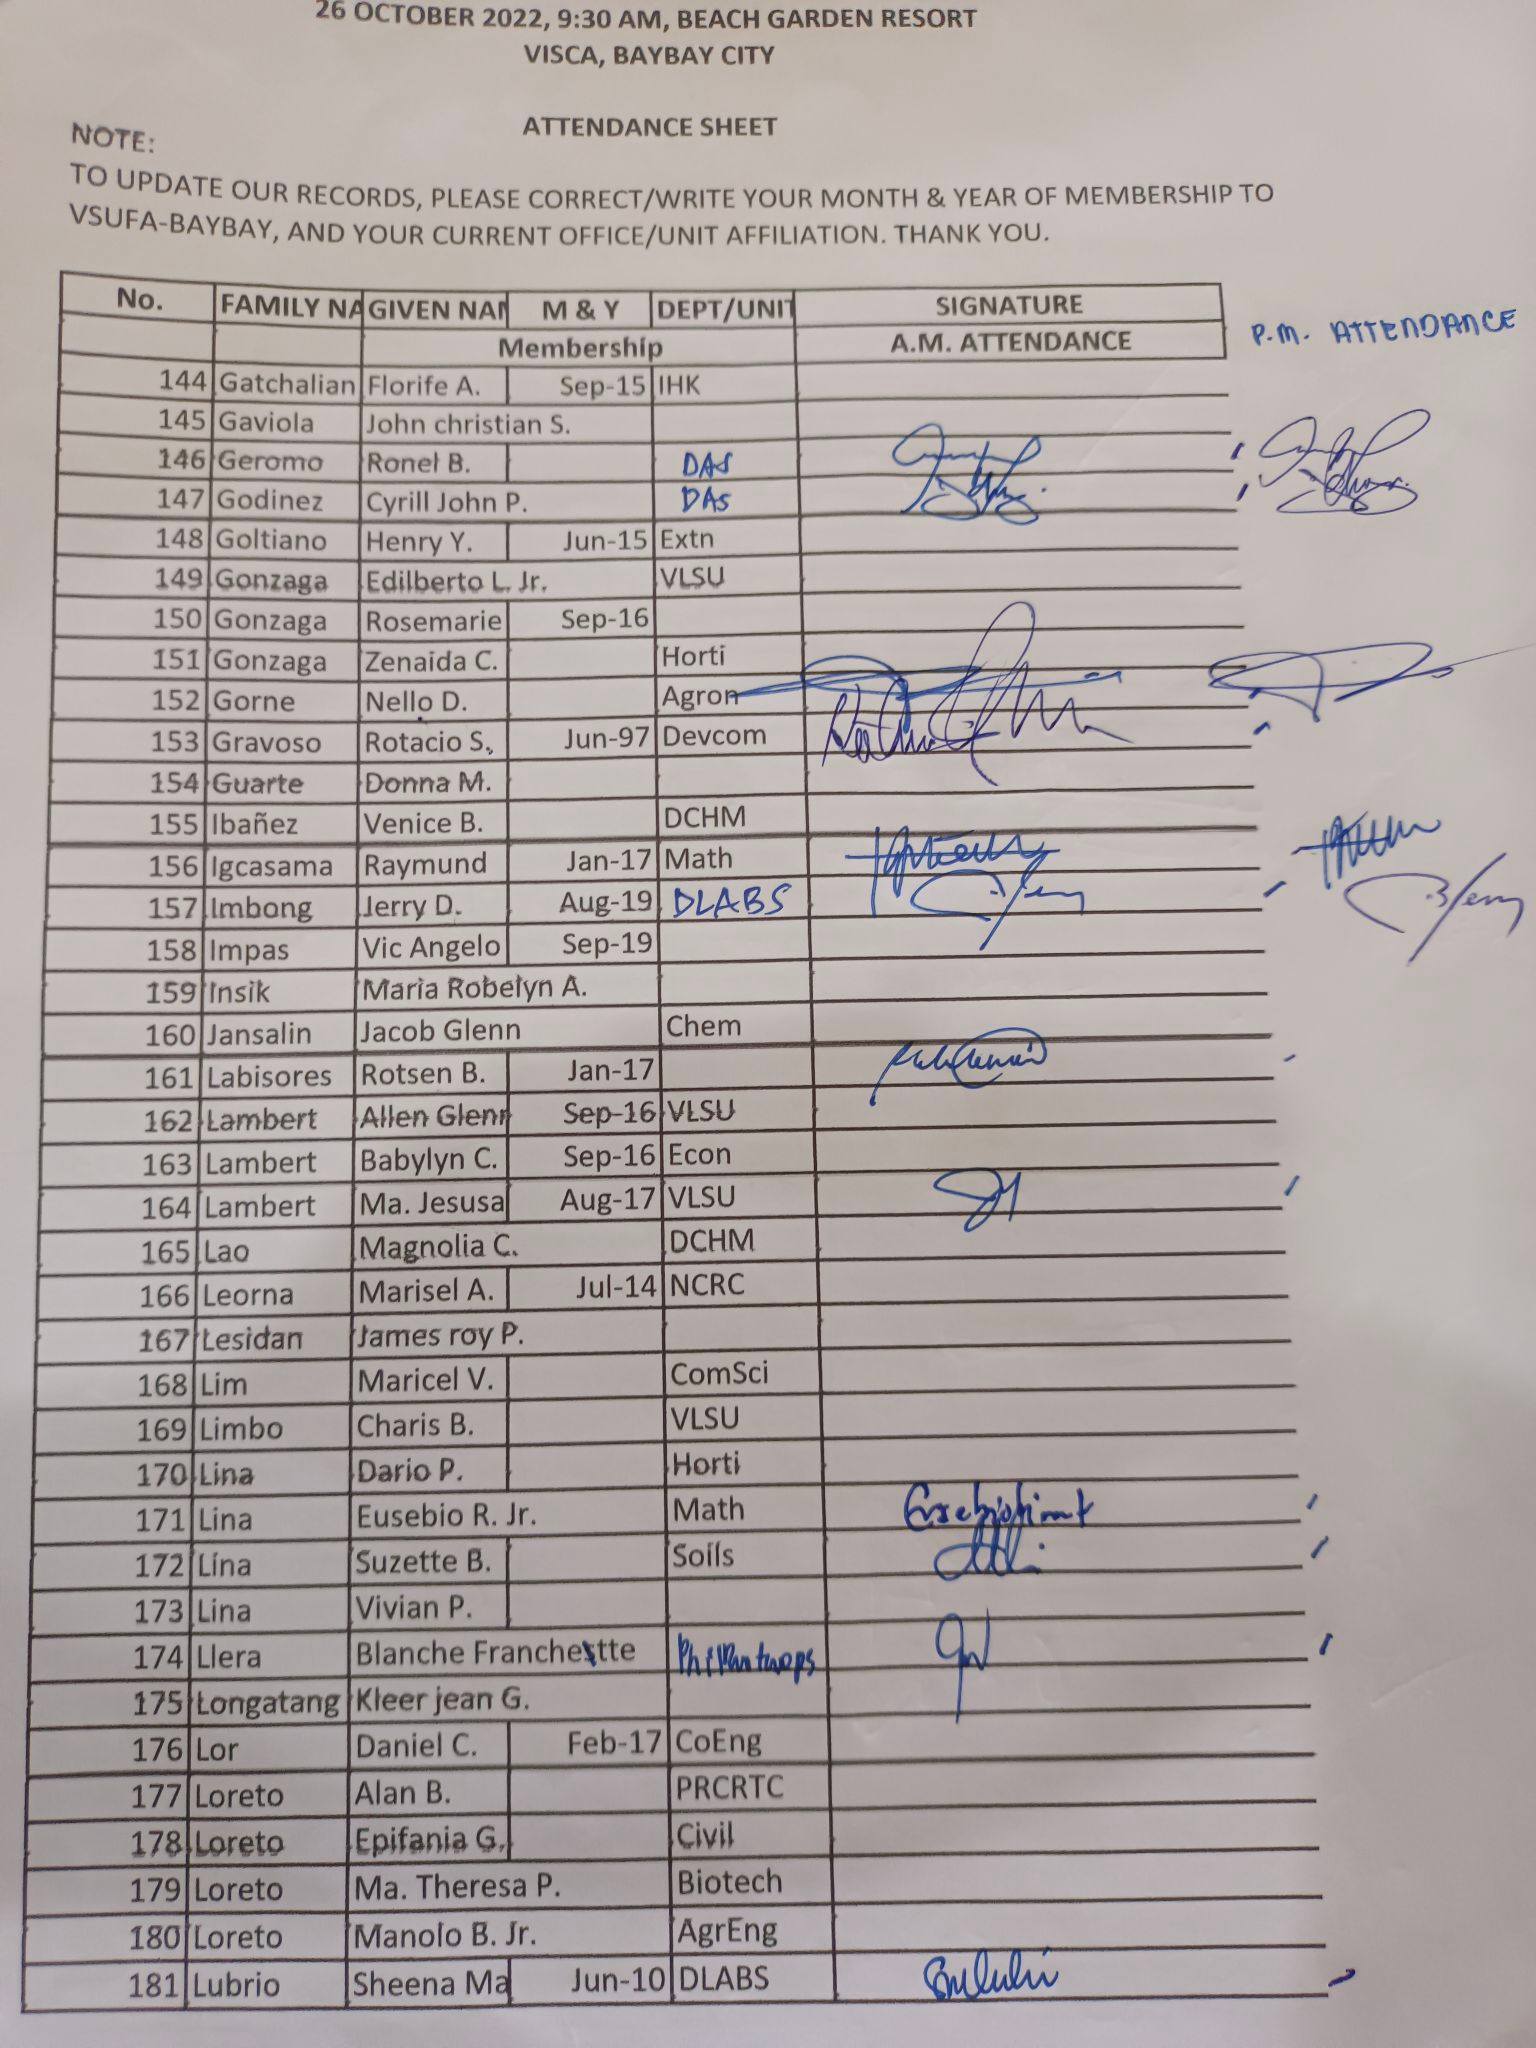 26 OCTOBER 2022, 9:30 AM, BEACH GARDEN RESORT
VISCA, BAYBAY CITY
ATTENDANCE SHEET
NOTE:
TO UPDATE OUR RECORDS, PLEASE CORRECT/WRITE YOUR MONTH & YEAR OF MEMBERSHIP TO
VSUFA-BAYBAY, AND YOUR CURRENT OFFICE/UNIT AFFILIATION. THANK YOU.
No. FAMILY NA GIVEN NAM M & Y DEPT/UNIT SIGNATURE
Membership A.M. ATTENDANCE P.M. ATTENDANCE
144 Gatchalian Florife A. Sep-15 IHK
145 Gaviola John christian S.
146 Geromo Ronel B. DAS
147 Godinez Cyrill John P. DAS
148 Goltiano Henry Y. Jun-15 Extn
149 Gonzaga Edilberto L. Jr. VLSU
150 Gonzaga Rosemarie Sep-16
151 Gonzaga Zenaida C. Horti
152 Gorne Nello D. Agron
153 Gravoso Rotacio S. Jun-97 Devcom
154 Guarte Donna M.
155 Ibañez Venice B. DCHM
156 Igcasama Raymund Jan-17 Math
157 Imbong Jerry D. Aug-19 DLABS
158 Impas Vic Angelo Sep-19
159 Insik Maria Robelyn A.
160 Jansalin Jacob Glenn Chem
161 Labisores Rotsen B. Jan-17
162 Lambert Allen Glenn Sep-16 VLSU
163 Lambert Babylyn C. Sep-16 Econ
164 Lambert Ma. Jesusa Aug-17 VLSU
165 Lao Magnolia C. DCHM
166 Leorna Marisel A. Jul-14 NCRC
167 Lesidan James roy P.
168 Lim Maricel V. ComSci
169 Limbo Charis B. VLSU
170 Lina Dario P. Horti
171 Lina Eusebio R. Jr. Math
172 Lina Suzette B. Soils
173 Lina Vivian P.
174 Llera Blanche Franchette
175 Longatang Kleer jean G.
176 Lor Daniel C. Feb-17 CoEng
177 Loreto Alan B. PRCRTC
178 Loreto Epifania G. Civil
179 Loreto Ma. Theresa P. Biotech
180 Loreto Manolo B. Jr. AgrEng
181 Lubrio Sheena Ma Jun-10 DLABS